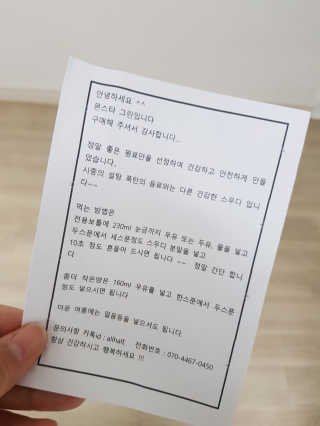 안녕하세요 ^^
몬스타 그린입니다
구매해 주셔서 감사합니다..
정말 좋은 원료만을 선정하여 건강하고 안전하게 만들
었습니다.
시중의 설탕 폭탄의 음료와는 다른 건강한 스무디 입니
다~~
먹는 방법은
전용보틀에 230ml 눈금까지 우유 또는 두유, 물을 넣고
두스푼에서 세스푼정도 스무디 분말을 넣고
10초 정도 흔들어 드시면 됩니다 ~~ 정말 간단 합니
다
좀더 작은양은 160ml 우유를 넣고 한스푼에서 두스푼
정도 넣으시면 됩니다
더운 여름에는 얼음등을 넣으셔도 됩니다.
문의사항 카톡id : allhalt 전화번호 : 070-4467-0450
항상 건강하시고 행복하세요 !!!